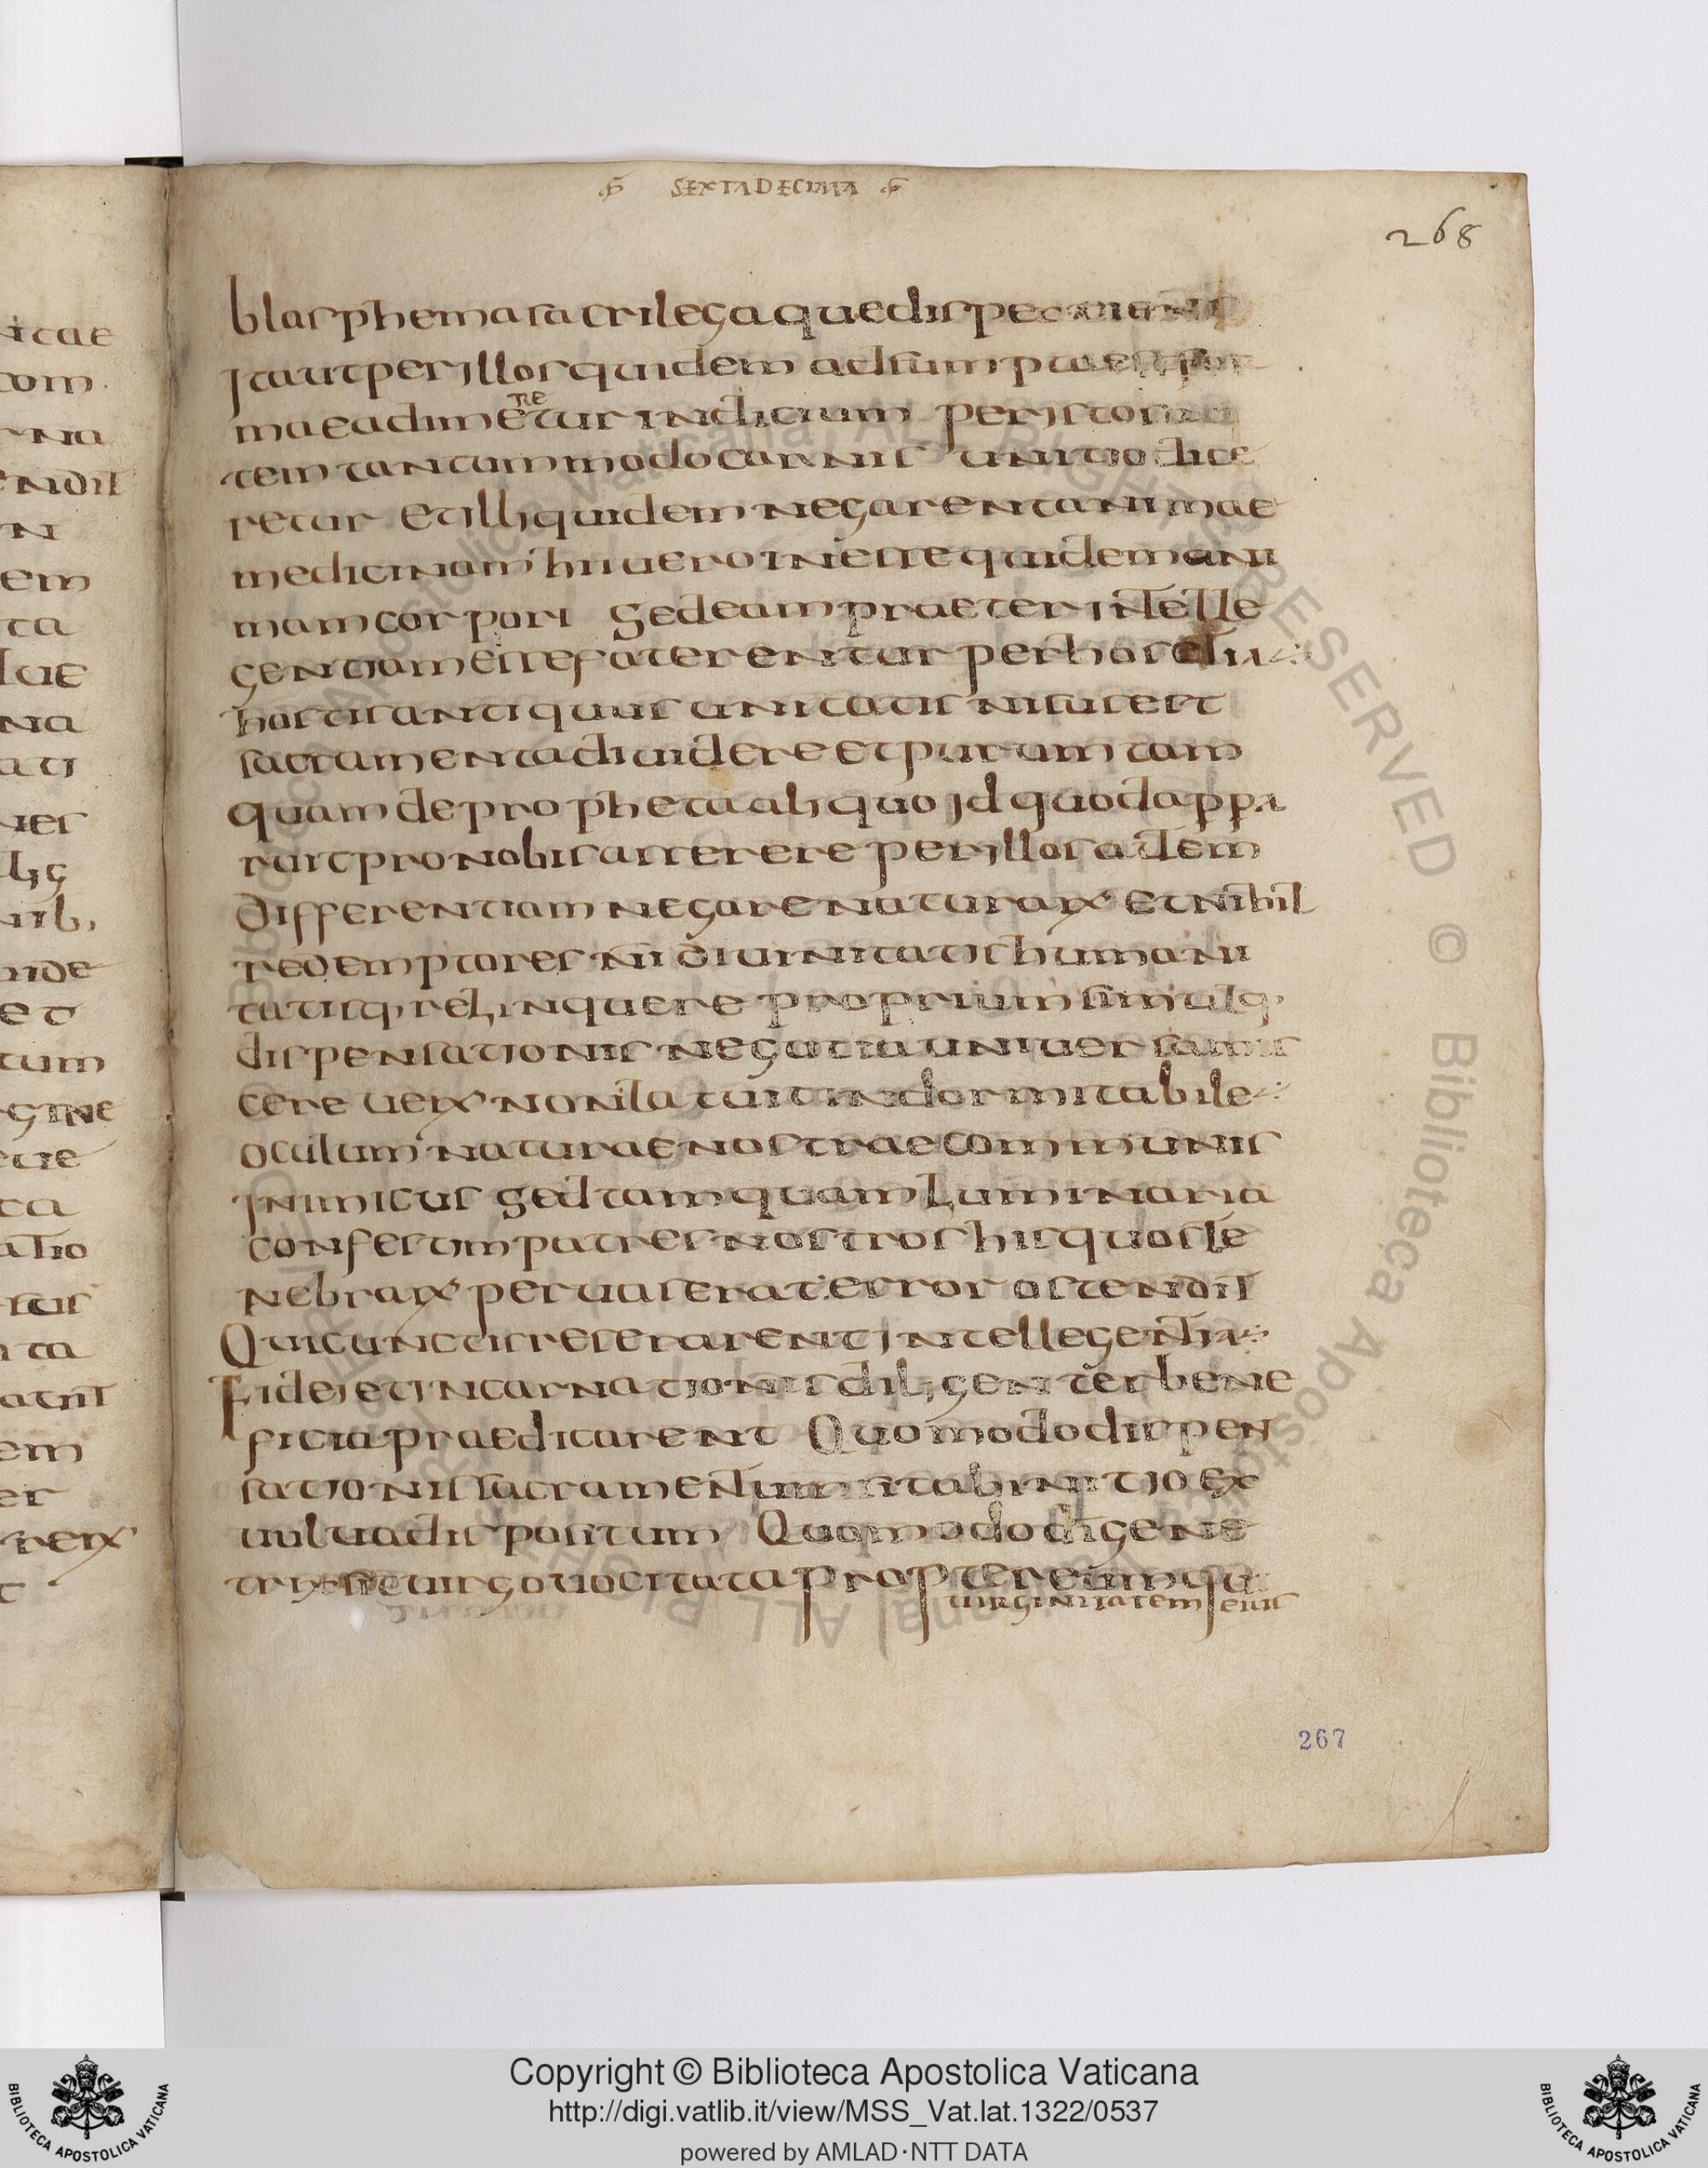 SEXTA DECIMA
268
blasphema sacrilegaque dispectionis
Ita ut per illos quidem adsumptae for
mae adimeretur indicium per istos au
tem tantummodo carnis unitio dice
retur et illi quidem negarent animae
medicinam hii uero inesse quidem ani
mam corpori sed eam praeter intelle
gentiam esse faterentur per hos etia
hostis antiquus unitatis nisus est
sacramenta diuidere et putrum tam
quam de propheta aliquo id quod appa
ruit pro nobis asserere per illos autem
differentiam negare naturarx et nihil
redemptores nī diuinitatis humani
tatisq, relinquere proprium simulq,
dispensationis negotia uniuersa mis
cere uerx non latuit indormitabile
oculum naturae nostrae communis
inimicus sed tamquam luminaria
confestim patres nostros his quos te
nebrarx peruaserat error ostendit
Qui cunctis resererarent intellegentia
Fidei et incarnationis diligenter bene
ficia praedicarent Quomodo dispen
sationis sacramentum sit ab initio ex
uulua dispositum Quomodo di gene
trix sit uirgo uocitata propter eum qui
uirginitatem eius
267
icae
com
rna
endit
n
em
ta
lue
na
ati
ues
lig
nib,
nde
et
tum
gine
eue
ta
atio
tus
ta
atril
em
er
rerx
t
Copyright © Biblioteca Apostolica Vaticana
http://digi.vatlib.it/view/MSS_Vat.lat.1322/0537
powered by AMLAD·NTT DATA
BIBLIOTECA APOSTOLICA VATICANA
BIBLIOTECA APOSTOLICA VATICANA